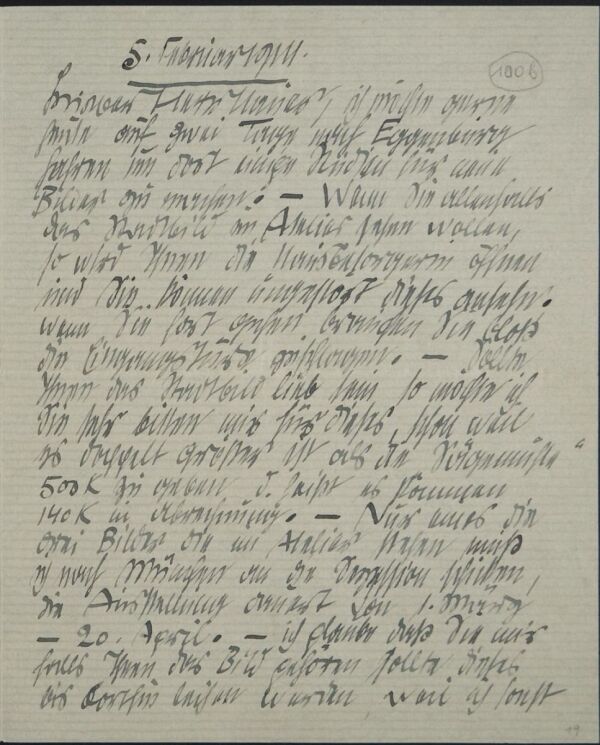 5. Februar 1911.
100 b
Lieber Herr Hauer, ich möchte gerne
heute auf zwei Tage nach Eggenburg
fahren um dort einige Studien für neue
Bilder zu machen. — Wenn Sie allenfalls
das Stadtbild im Atelier sehen wollen,
so wird Ihnen die Hausbesorgerin öffnen
und Sie können ungestört dieses ansehen.
wenn Sie fort gehen brauchen Sie bloß
die Eingangstüre zuschlagen. — Sollte
Ihnen das Stadtbild lieb sein so möchte ich
Sie sehr bitten mir für dieses, schon weil
es doppelt größer ist als die "Sägemühle"
500 K zu geben d. heißt es kommen
140 K in Abrechnung. — Nur eines der
drei Bilder die im Atelier stehen muß
ich nach München an die Sezession schicken,
die Ausstellung dauert von 1. März
— 20. April. — ich glaube daß Sie mir
falls Ihnen das Bild gehören sollte dieses
bis dorthin leihen würden, weil ich sonst
19